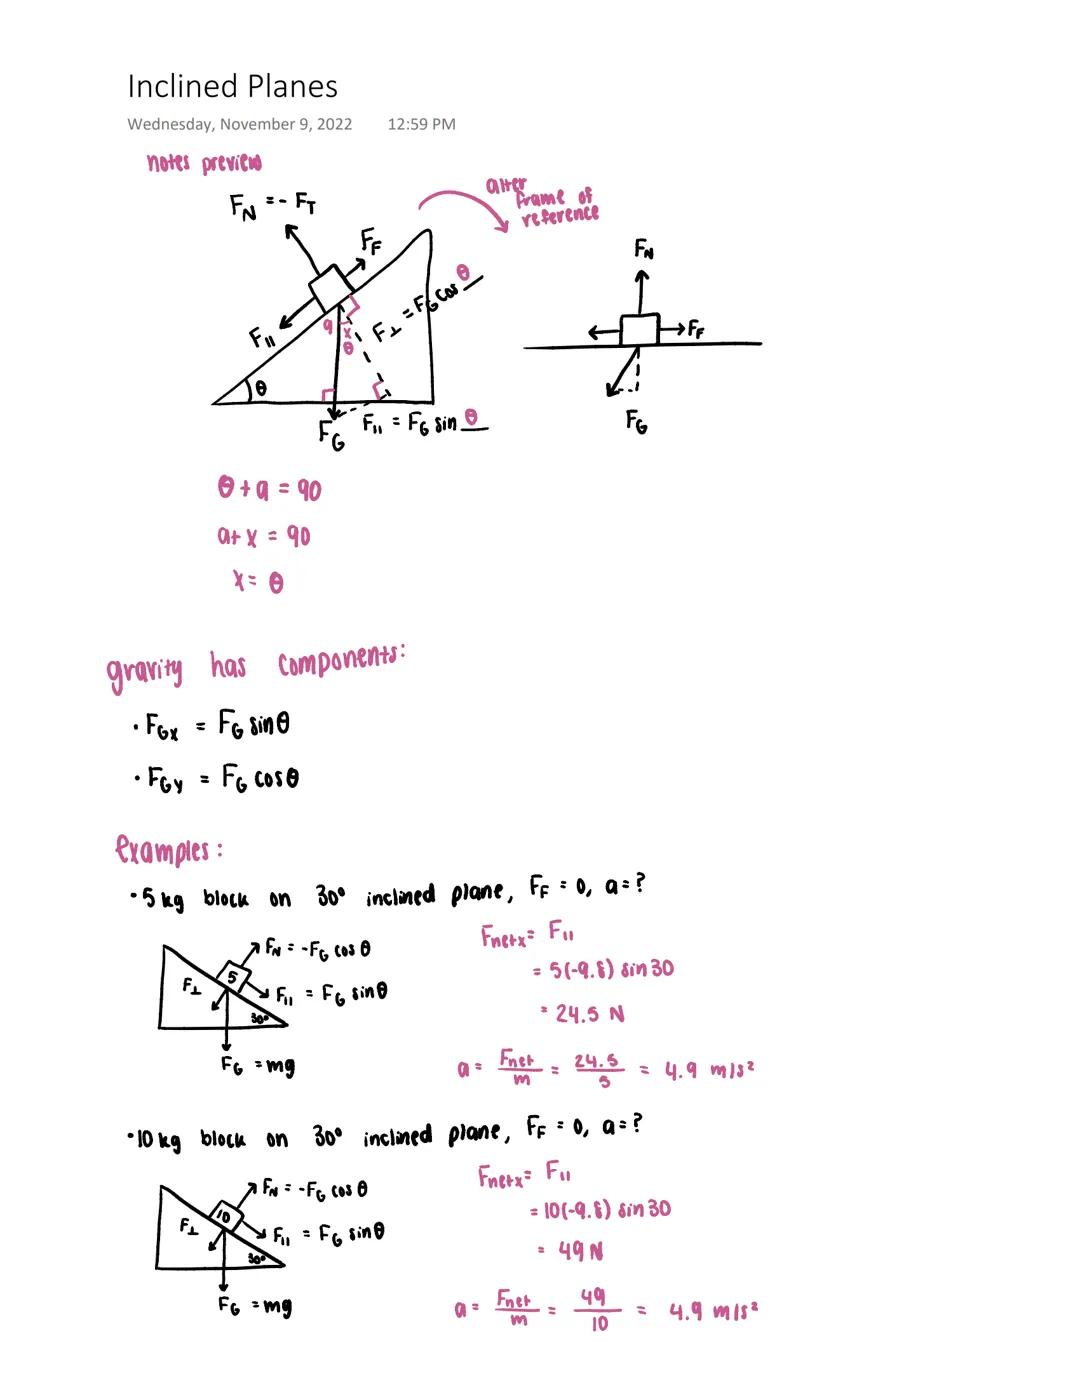 Inclined Planes
Wednesday, November 9, 2022 12:59 PM
notes preview
F_N = - F_T
F_F
alter
frame of
reference
F_⊥ = F_G cos θ
F_||
a
x
θ
θ
F_G
F_|| = F_G sin θ
F_N
F_F
F_G
θ + a = 90
a + x = 90
x = θ
gravity has components:
· F_Gx = F_G sin θ
· F_Gy = F_G cos θ
examples:
· 5 kg block on 30° inclined plane, F_F = 0, a = ?
F_N = -F_G cos θ
5
F_⊥
F_|| = F_G sin θ
30°
F_G = mg
F_netx = F_||
= 5(-9.8) sin 30
= 24.5 N
a = F_net/m = 24.5/5 = 4.9 m/s²
· 10 kg block on 30° inclined plane, F_F = 0, a = ?
F_N = -F_G cos θ
10
F_⊥
F_|| = F_G sin θ
30°
F_G = mg
F_netx = F_||
= 10(-9.8) sin 30
= 49 N
a = F_net/m = 49/10 = 4.9 m/s²